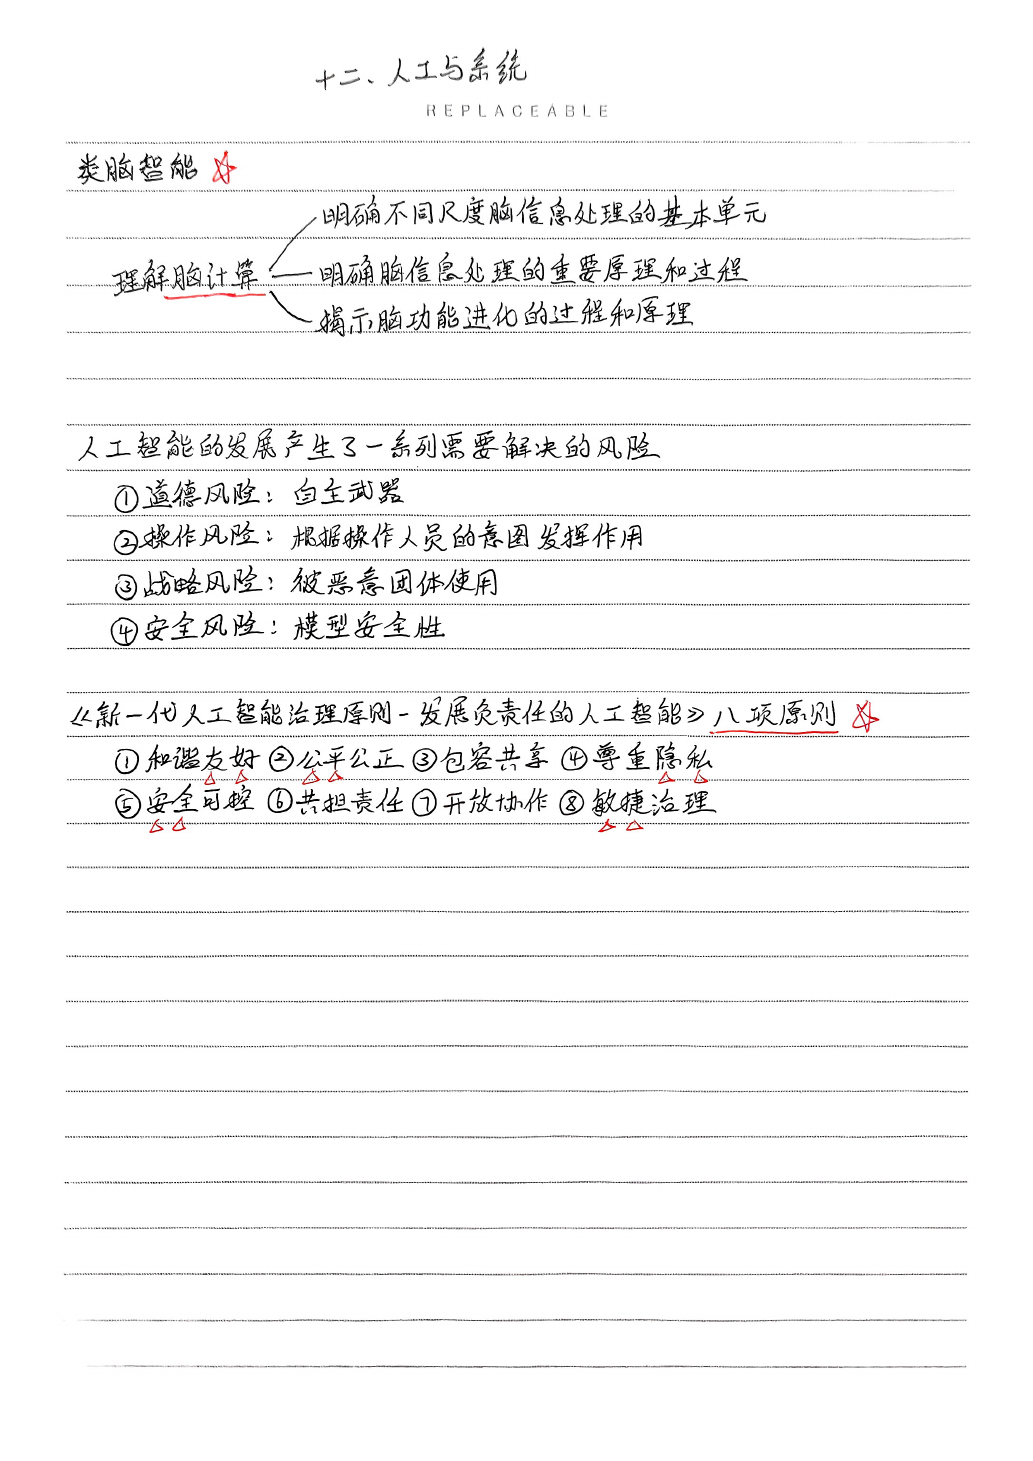 十二、人工与系统
REPLACEABLE
类脑智能
明确不同尺度脑信息处理的基本单元
理解脑计算
明确脑信息处理的重要原理和过程
揭示脑功能进化的过程和原理
人工智能的发展产生了一系列需要解决的风险
①道德风险：自主武器
②操作风险：根据操作人员的意图发挥作用
③战略风险：被恶意团体使用
④安全风险：模型安全性
《新一代人工智能治理原则-发展负责任的人工智能》八项原则
①和谐友好②公平公正③包容共享④尊重隐私
⑤安全可控⑥共担责任⑦开放协作⑧敏捷治理